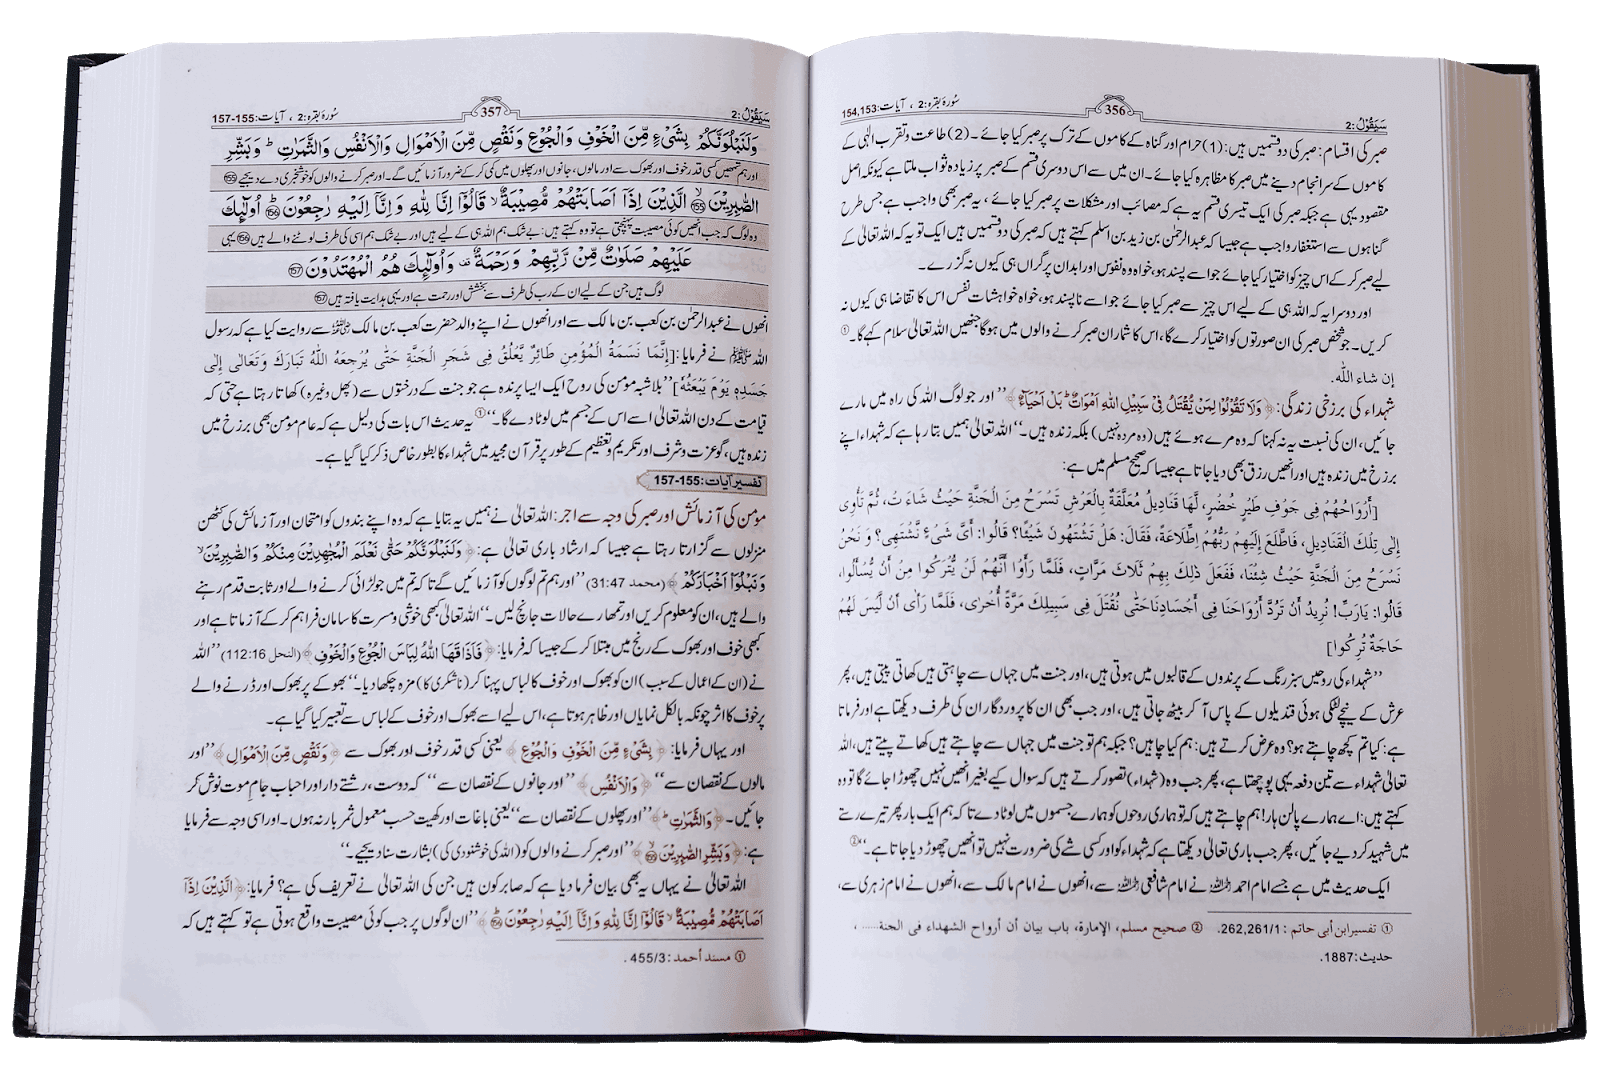 سَيَقُوْلُ:2 356 سُورۂ بقرہ:2 ، آیات:154,153
صبر کی اقسام: صبر کی دو قسمیں ہیں: (1) حرام اور گناہ کے کاموں کے ترک پر صبر کیا جائے۔ (2) طاعت و تقرب الٰہی کے
کاموں کے سرانجام دینے میں صبر کا مظاہرہ کیا جائے۔ ان میں سے اس دوسری قسم کے صبر پر زیادہ ثواب ملتا ہے کیونکہ اصل
مقصود یہی ہے جبکہ صبر کی ایک تیسری قسم یہ ہے کہ مصائب اور مشکلات پر صبر کیا جائے، یہ صبر بھی واجب ہے جس طرح
گناہوں سے استغفار واجب ہے جیسا کہ عبدالرحمٰن بن زید بن اسلم کہتے ہیں کہ صبر کی دو قسمیں ہیں ایک تو یہ کہ اللہ تعالیٰ کے
لیے صبر کر کے اس چیز کو اختیار کیا جائے جو اسے پسند ہو، خواہ وہ نفوس اور ابدان پر گراں ہی کیوں نہ گزرے۔
اور دوسرا یہ کہ اللہ ہی کے لیے اس چیز سے صبر کیا جائے جو اسے ناپسند ہو، خواہ خواہشات نفس اس کا تقاضا ہی کیوں نہ
کریں۔ جو شخص صبر کی ان صورتوں کو اختیار کرے گا، اس کا شمار ان صبر کرنے والوں میں ہوگا جنھیں اللہ تعالیٰ سلام کہے گا۔①
إن شاء اللہ.
شہداء کی برزخی زندگی: ﴿وَلَا تَقُوْلُوْا لِمَنْ يُّقْتَلُ فِيْ سَبِيْلِ اللهِ اَمْوَاتٌ ؕ بَلْ اَحْيَآءٌ﴾ ”اور جو لوگ اللہ کی راہ میں مارے
جائیں، ان کی نسبت یہ نہ کہنا کہ وہ مرے ہوئے ہیں (وہ مردہ نہیں) بلکہ زندہ ہیں۔“ اللہ تعالیٰ ہمیں بتا رہا ہے کہ شہداء اپنے
برزخ میں زندہ ہیں اور انھیں رزق بھی دیا جاتا ہے جیسا کہ صحیح مسلم میں ہے:
[أَرْوَاحُهُمْ فِي جَوْفِ طَيْرٍ خُضْرٍ، لَهَا قَنَادِيلُ مُعَلَّقَةٌ بِالْعَرْشِ تَسْرَحُ مِنَ الْجَنَّةِ حَيْثُ شَاءَتْ، ثُمَّ تَأْوِي
إِلَى تِلْكَ الْقَنَادِيلِ، فَاطَّلَعَ إِلَيْهِمْ رَبُّهُمُ اطِّلَاعَةً، فَقَالَ: هَلْ تَشْتَهُونَ شَيْئًا؟ قَالُوا: أَيَّ شَيْءٍ نَّشْتَهِي؟ وَ نَحْنُ
نَسْرَحُ مِنَ الْجَنَّةِ حَيْثُ شِئْنَا، فَفَعَلَ ذٰلِكَ بِهِمْ ثَلَاثَ مَرَّاتٍ، فَلَمَّا رَأَوْا أَنَّهُمْ لَنْ يُّتْرَكُوا مِنْ أَنْ يُّسْأَلُوا،
قَالُوا: يَارَبِّ! نُرِيدُ أَنْ تَرُدَّ أَرْوَاحَنَا فِي أَجْسَادِنَا حَتّٰى نُقْتَلَ فِي سَبِيلِكَ مَرَّةً أُخْرٰى، فَلَمَّا رَأٰى أَنْ لَّيْسَ لَهُمْ
حَاجَةٌ تُرِكُوا]
”شہداء کی روحیں سبز رنگ کے پرندوں کے قالبوں میں ہوتی ہیں، اور جنت میں جہاں سے چاہتی ہیں کھاتی پیتی ہیں، پھر
عرش کے نیچے لٹکی ہوئی قندیلوں کے پاس آ کر بیٹھ جاتی ہیں، اور جب بھی ان کا پروردگار ان کی طرف دیکھتا ہے اور فرماتا
ہے: کیا تم کچھ چاہتے ہو؟ وہ عرض کرتے ہیں: ہم کیا چاہیں؟ جبکہ ہم تو جنت میں جہاں سے چاہتے ہیں کھاتے پیتے ہیں، اللہ
تعالیٰ شہداء سے تین دفعہ یہی پوچھتا ہے، پھر جب وہ (شہداء) تصور کرتے ہیں کہ سوال کیے بغیر انھیں نہیں چھوڑا جائے گا تو وہ
کہتے ہیں: اے ہمارے پالن ہار! ہم چاہتے ہیں کہ تو ہماری روحوں کو ہمارے جسموں میں لوٹا دے تاکہ ہم ایک بار پھر تیرے رستے
میں شہید کر دیے جائیں، پھر جب باری تعالیٰ دیکھتا ہے کہ شہداء کو اور کسی شے کی ضرورت نہیں تو انھیں چھوڑ دیا جاتا ہے۔“②
ایک حدیث میں ہے جسے امام احمد رحمہ اللہ نے امام شافعی رحمہ اللہ سے، انھوں نے امام مالک سے، انھوں نے امام زہری سے،
① تفسير ابن أبي حاتم : 262,261/1. ② صحيح مسلم، الإمارة، باب بيان أن أرواح الشهداء في الجنة......،
حديث:1887.
سَيَقُوْلُ:2 357 سُورۂ بقرہ:2 ، آیات:155-157
وَلَنَبْلُوَنَّكُمْ بِشَيْءٍ مِّنَ الْخَوْفِ وَالْجُوْعِ وَنَقْصٍ مِّنَ الْاَمْوَالِ وَالْاَنْفُسِ وَالثَّمَرٰتِ ؕ وَبَشِّرِ
اور ہم تمھیں کسی قدر خوف اور بھوک سے اور مالوں، جانوں اور پھلوں میں کمی کر کے ضرور آزمائیں گے۔ اور صبر کرنے والوں کو خوشخبری دے دیجیے ⑮⑤
الصّٰبِرِيْنَ ۙ155 الَّذِيْنَ اِذَآ اَصَابَتْهُمْ مُّصِيْبَةٌ ۙ قَالُوْٓا اِنَّا لِلّٰهِ وَاِنَّآ اِلَيْهِ رٰجِعُوْنَ ؕ156 اُولٰٓئِكَ
وہ لوگ کہ جب انھیں کوئی مصیبت پہنچتی ہے تو وہ کہتے ہیں: بے شک ہم اللہ ہی کے لیے ہیں اور بے شک ہم اسی کی طرف لوٹنے والے ہیں 156 یہی
عَلَيْهِمْ صَلَوٰتٌ مِّنْ رَّبِّهِمْ وَرَحْمَةٌ ۟ وَاُولٰٓئِكَ هُمُ الْمُهْتَدُوْنَ 157
لوگ ہیں جن کے لیے ان کے رب کی طرف سے بخشش اور رحمت ہے اور یہی ہدایت یافتہ ہیں 157
انھوں نے عبدالرحمٰن بن کعب بن مالک سے اور انھوں نے اپنے والد حضرت کعب بن مالک رضی اللہ عنہ سے روایت کیا ہے کہ رسول
اللہ ﷺ نے فرمایا: [إِنَّمَا نَسَمَةُ الْمُؤْمِنِ طَائِرٌ يَّعْلُقُ فِي شَجَرِ الْجَنَّةِ حَتّٰى يُرْجِعَهُ اللّٰهُ تَبَارَكَ وَتَعَالٰى إِلٰى
جَسَدِهٖ يَوْمَ يَبْعَثُهٗ] ”بلاشبہ مومن کی روح ایک ایسا پرندہ ہے جو جنت کے درختوں سے (پھل وغیرہ) کھاتا رہتا ہے حتی کہ
قیامت کے دن اللہ تعالیٰ اسے اس کے جسم میں لوٹا دے گا۔“① یہ حدیث اس بات کی دلیل ہے کہ عام مومن بھی برزخ میں
زندہ ہیں، گو عزت و شرف اور تکریم و تعظیم کے طور پر قرآن مجید میں شہداء کا بطور خاص ذکر کیا گیا ہے۔
تفسیر آیات:155-157
مومن کی آزمائش اور صبر کی وجہ سے اجر: اللہ تعالیٰ نے ہمیں یہ بتایا ہے کہ وہ اپنے بندوں کو امتحان اور آزمائش کی کٹھن
منزلوں سے گزارتا رہتا ہے جیسا کہ ارشاد باری تعالیٰ ہے: ﴿وَلَنَبْلُوَنَّكُمْ حَتّٰى نَعْلَمَ الْمُجٰهِدِيْنَ مِنْكُمْ وَالصّٰبِرِيْنَ ۙ
وَنَبْلُوَا۟ اَخْبَارَكُمْ﴾ (محمد 31:47) ”اور ہم تم لوگوں کو آزمائیں گے تاکہ تم میں جو لڑائی کرنے والے اور ثابت قدم رہنے
والے ہیں، ان کو معلوم کریں اور تمھارے حالات جانچ لیں۔“ اللہ تعالیٰ کبھی خوشی و مسرت کا سامان فراہم کر کے آزماتا ہے اور
کبھی خوف اور بھوک کے رنج میں مبتلا کر کے جیسا کہ فرمایا: ﴿فَاَذَاقَهَا اللّٰهُ لِبَاسَ الْجُوْعِ وَالْخَوْفِ﴾ (النحل 112:16) ”اللہ
نے (ان کے اعمال کے سبب) ان کو بھوک اور خوف کا لباس پہنا کر (ناشکری کا) مزہ چکھا دیا۔“ بھوکے پر بھوک اور ڈرنے والے
پر خوف کا اثر چونکہ بالکل نمایاں اور ظاہر ہوتا ہے، اس لیے اسے بھوک اور خوف کے لباس سے تعبیر کیا گیا ہے۔
اور یہاں فرمایا: ﴿بِشَيْءٍ مِّنَ الْخَوْفِ وَالْجُوْعِ﴾ یعنی کسی قدر خوف اور بھوک سے ﴿وَنَقْصٍ مِّنَ الْاَمْوَالِ﴾ ”اور
مالوں کے نقصان سے“ ﴿وَالْاَنْفُسِ﴾ ”اور جانوں کے نقصان سے“ کہ دوست، رشتے دار اور احباب جام موت نوش کر
جائیں۔ ﴿وَالثَّمَرٰتِ ؕ﴾ ”اور پھلوں کے نقصان سے“ یعنی باغات اور کھیت حسب معمول ثمر بار نہ ہوں۔ اور اسی وجہ سے فرمایا
ہے: ﴿وَبَشِّرِ الصّٰبِرِيْنَ ۙ155﴾ ”اور صبر کرنے والوں کو (اللہ کی خوشنودی کی) بشارت سنا دیجیے۔“
اللہ تعالیٰ نے یہاں یہ بھی بیان فرما دیا ہے کہ صابر کون ہیں جن کی اللہ تعالیٰ نے تعریف کی ہے؟ فرمایا: ﴿الَّذِيْنَ اِذَآ
اَصَابَتْهُمْ مُّصِيْبَةٌ ۙ قَالُوْٓا اِنَّا لِلّٰهِ وَاِنَّآ اِلَيْهِ رٰجِعُوْنَ ؕ156﴾ ”ان لوگوں پر جب کوئی مصیبت واقع ہوتی ہے تو کہتے ہیں کہ
① مسند أحمد : 455/3 .